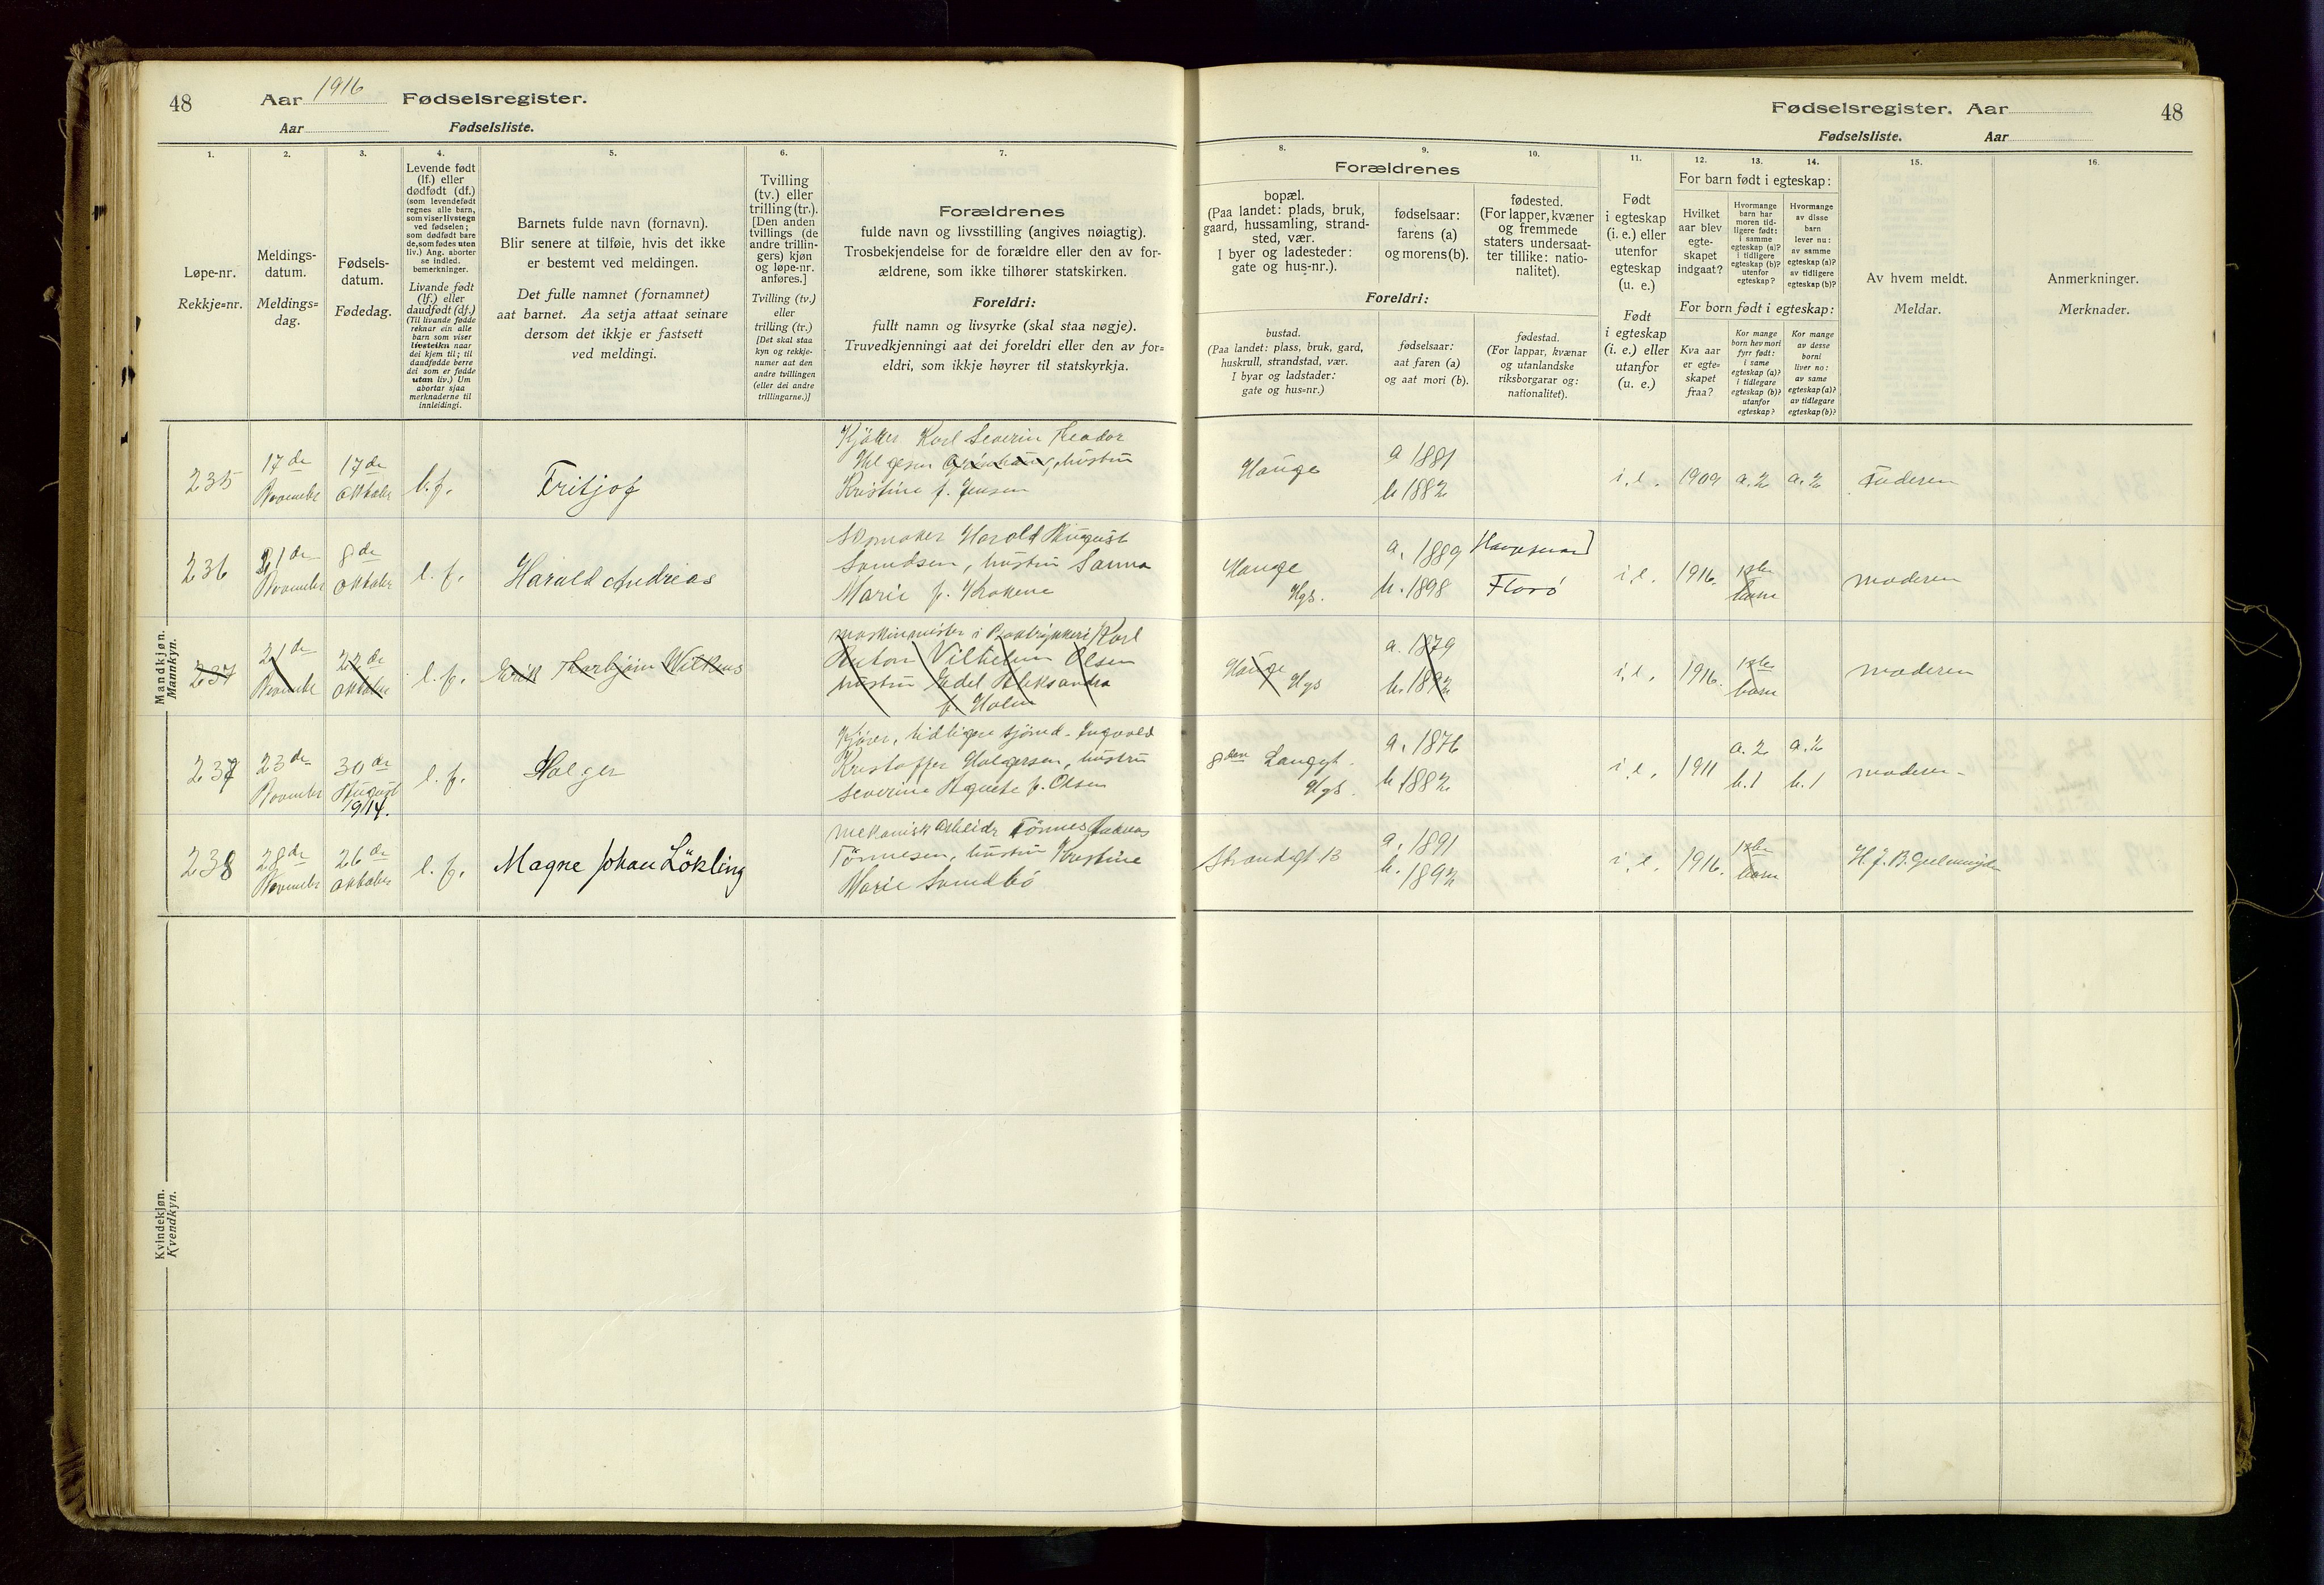 48
Aar 1916 Fødselsregister.
Aar Fødselsliste.
1.
2.
3.
4.
5.
6.
7.
Løpe-nr.
Rekkje=nr.
Meldings-
datum.
Meldings=
dag.
Fødsels-
datum.
Fødedag.
Levende født
(lf.) eller
dødfødt (df.)
(som levendefødt
regnes alle barn,
som viser livstegn
ved fødselen;
som dødfødt bare
de, som fødes uten
liv.) Ang. aborter
se indled.
bemerkninger.
Livande født
(lf.) eller
daudfødt (df.)
(Til livande fødde
reknar ein alle
barn som viser
livsteikn naar
dei kjem til; til
daudfødde berre
dei som er fødde
utan liv.) Um
abortar sjaa
merknaderne til
innleidingi.
Barnets fulde navn (fornavn).
Blir senere at tilføie, hvis det ikke
er bestemt ved meldingen.
Det fulle namnet (fornamnet)
aat barnet. Aa setja attaat seinare
dersom det ikkje er fastsett
ved meldingi.
Tvilling
(tv.) eller
trilling (tr.).
[Den anden
tvillings (de
andre trillin-
gers) kjøn
og løpe-nr.
anføres.]
Tvilling (tv.)
eller
trilling (tr.)
[Det skal staa
kyn og rekkje-
numer aat den
andre tvillingen
(eller dei andre
trillingarne.)]
Forældrenes
fulde navn og livsstilling (angives nøiagtig).
Trosbekjendelse for de forældre eller den av for-
ældrene, som ikke tilhører statskirken.
Foreldri:
fullt namn og livsyrke (skal staa nøgje).
Truvedkjenningi aat dei foreldri eller den av for=
eldri, som ikkje høyrer til statskyrkja.
Mandkjøn.
Mannkyn.
235
17de
November
17de
oktober
l.f.
Fritjof
Karl Severin Teodor
Helgesen hustru
Kristine f. Jensen
236
21de
November
8de
oktober
l. f.
Harald Andreas
Harald August
hustru Sanna
Marie f.
237
21de
November
22de
oktober
l. f.
Erik Thorbjörn
maskinmester i Karl
Anton Vilhelm Olsen
hustru Edel Aleksandra
f. Holm
237
23de
November
30de
August
1914.
l. f.
Holger
Kjører, tidligere sjømd. Ingvald
Kristoffer Holgersen, hustru
Severine Agnete f. Olsen
238
28de
November
26de
oktober
l. f.
Magne Johan Lökling
mekanisk arbeider Tönnes
Tönnesen, hustru Kristine
Marie Sundbö
Kvindekjøn.
Kvendkyn.
Fødselsregister. Aar 48
Fødselsliste. Aar
8.
9.
10.
11.
12.
13.
14.
15.
16.
Forældrenes
bopæl.
(Paa landet: plads, bruk,
gaard, hussamling, strand-
sted, vær.
I byer og ladesteder:
gate og hus-nr.).
fødselsaar:
farens (a)
og morens (b).
fødested.
(For lapper, kvæner
og fremmede
staters undersaat-
ter tillike: natio-
nalitet).
Foreldri:
bustad.
(Paa landet: plass, bruk, gard,
huskrull, strandstad, vær.
I byar og ladstader:
gate og hus=nr.)
fødselsaar:
aat faren (a)
og aat mori (b).
fødestad.
(For lappar, kvænar
og utanlandske
riksborgarar og:
nationalitet).
Født
i egteskap
(i. e.) eller
utenfor
egteskap
(u. e.)
Født
i egteskap
(i. e.) eller
utanfor
(u. e.)
For barn født i egteskap:
Hvilket
aar blev
egte-
skapet
indgaat?
Hvormange
barn har
moren tid-
ligere født:
i samme
egteskap (a)?
i tidligere
egteskap (b)?
utenfor
egteskap?
Hvormange
av disse
barn
lever nu:
av samme
egteskap (a)?
av tidligere
egteskap (b)?
For born født i egteskap:
Kva aar
er egte=
skapet
fraa?
Kor mange
born hev mori
fyrr født:
i same
egteskap (a)?
i tidlegare
egteskap (b)?
utanfor
egteskap?
Kor mange
av desse
borni
liver no:
av same
egteskap (a)?
av tidlegare
egteskap (b)?
Av hvem meldt.
Meldar.
Anmerkninger.
Merknader.
Hauge
a 1881
b 1882
i. e.
1909
a. 2
a. 2
Faderen
Hauge
Hgs.
a. 1889
b. 1898
Florö
i. e.
1916.
1ste
barn
moderen
Hauge
Hgs
a. 1879
b. 1892
i. e.
1916.
1ste
barn
moderen
Langgt.
Hgs.
a. 1876
b. 1882
i. e.
1911
a. 2
b. 1
a. 2
b. 1
moderen
Strandgt 13
a. 1891
b. 1892
i. e.
1916.
1ste
barn